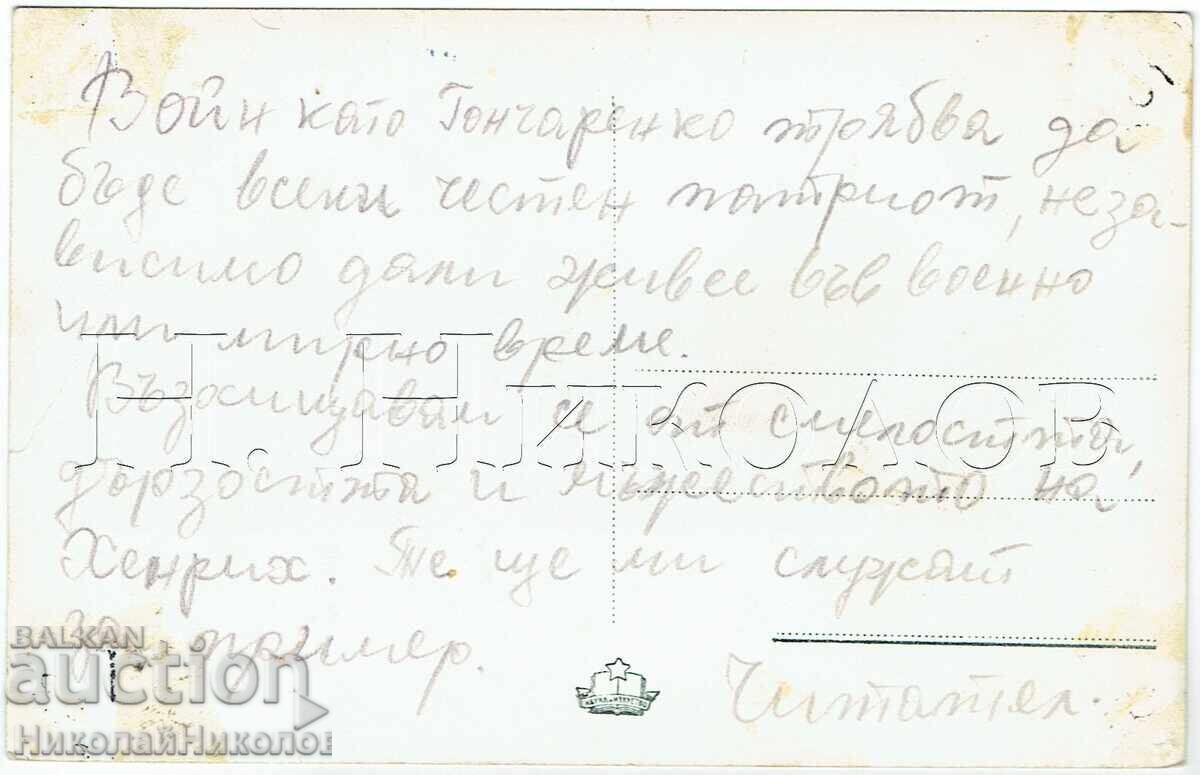 Войн като Гончаренко трябва да
бъде всеки честен патриот, неза-
висимо дали живее във военно
или мирно време.
Възхищавам се от смелостта,
дързостта и мъжеството на
Хенрих. Те ще ми служат
за пример.
Читател.
Н. НИКОЛОВ
BALKAN
auction
НиколайНиколов